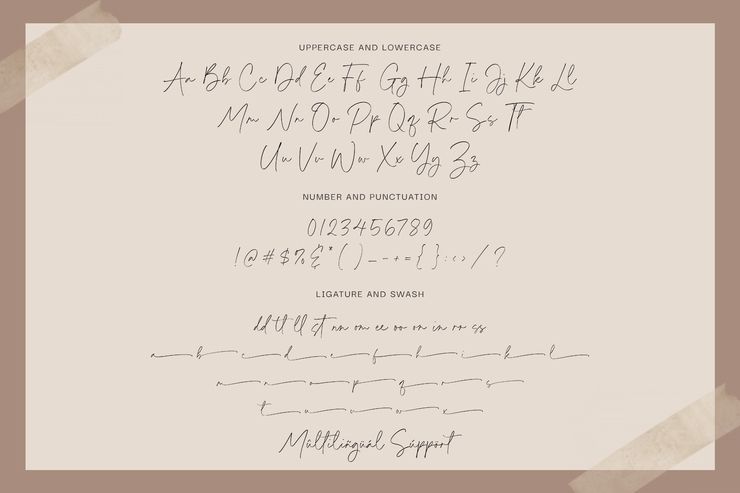 UPPERCASE AND LOWERCASE
Aa Bb Cc Dd Ee Ff Gg Hh Ii Jj Kk Ll
Mm Nn Oo Pp Qq Rr Ss Tt
Uu Vv Ww Xx Yy Zz
NUMBER AND PUNCTUATION
0123456789
!@#$%&*()_-+={}:<>/?
LIGATURE AND SWASH
dd tt ll st nn om ee oo on in ro ss
a b c d e f h i k l
m n o p q r s
t u v w x
Mültilingüál Süppört